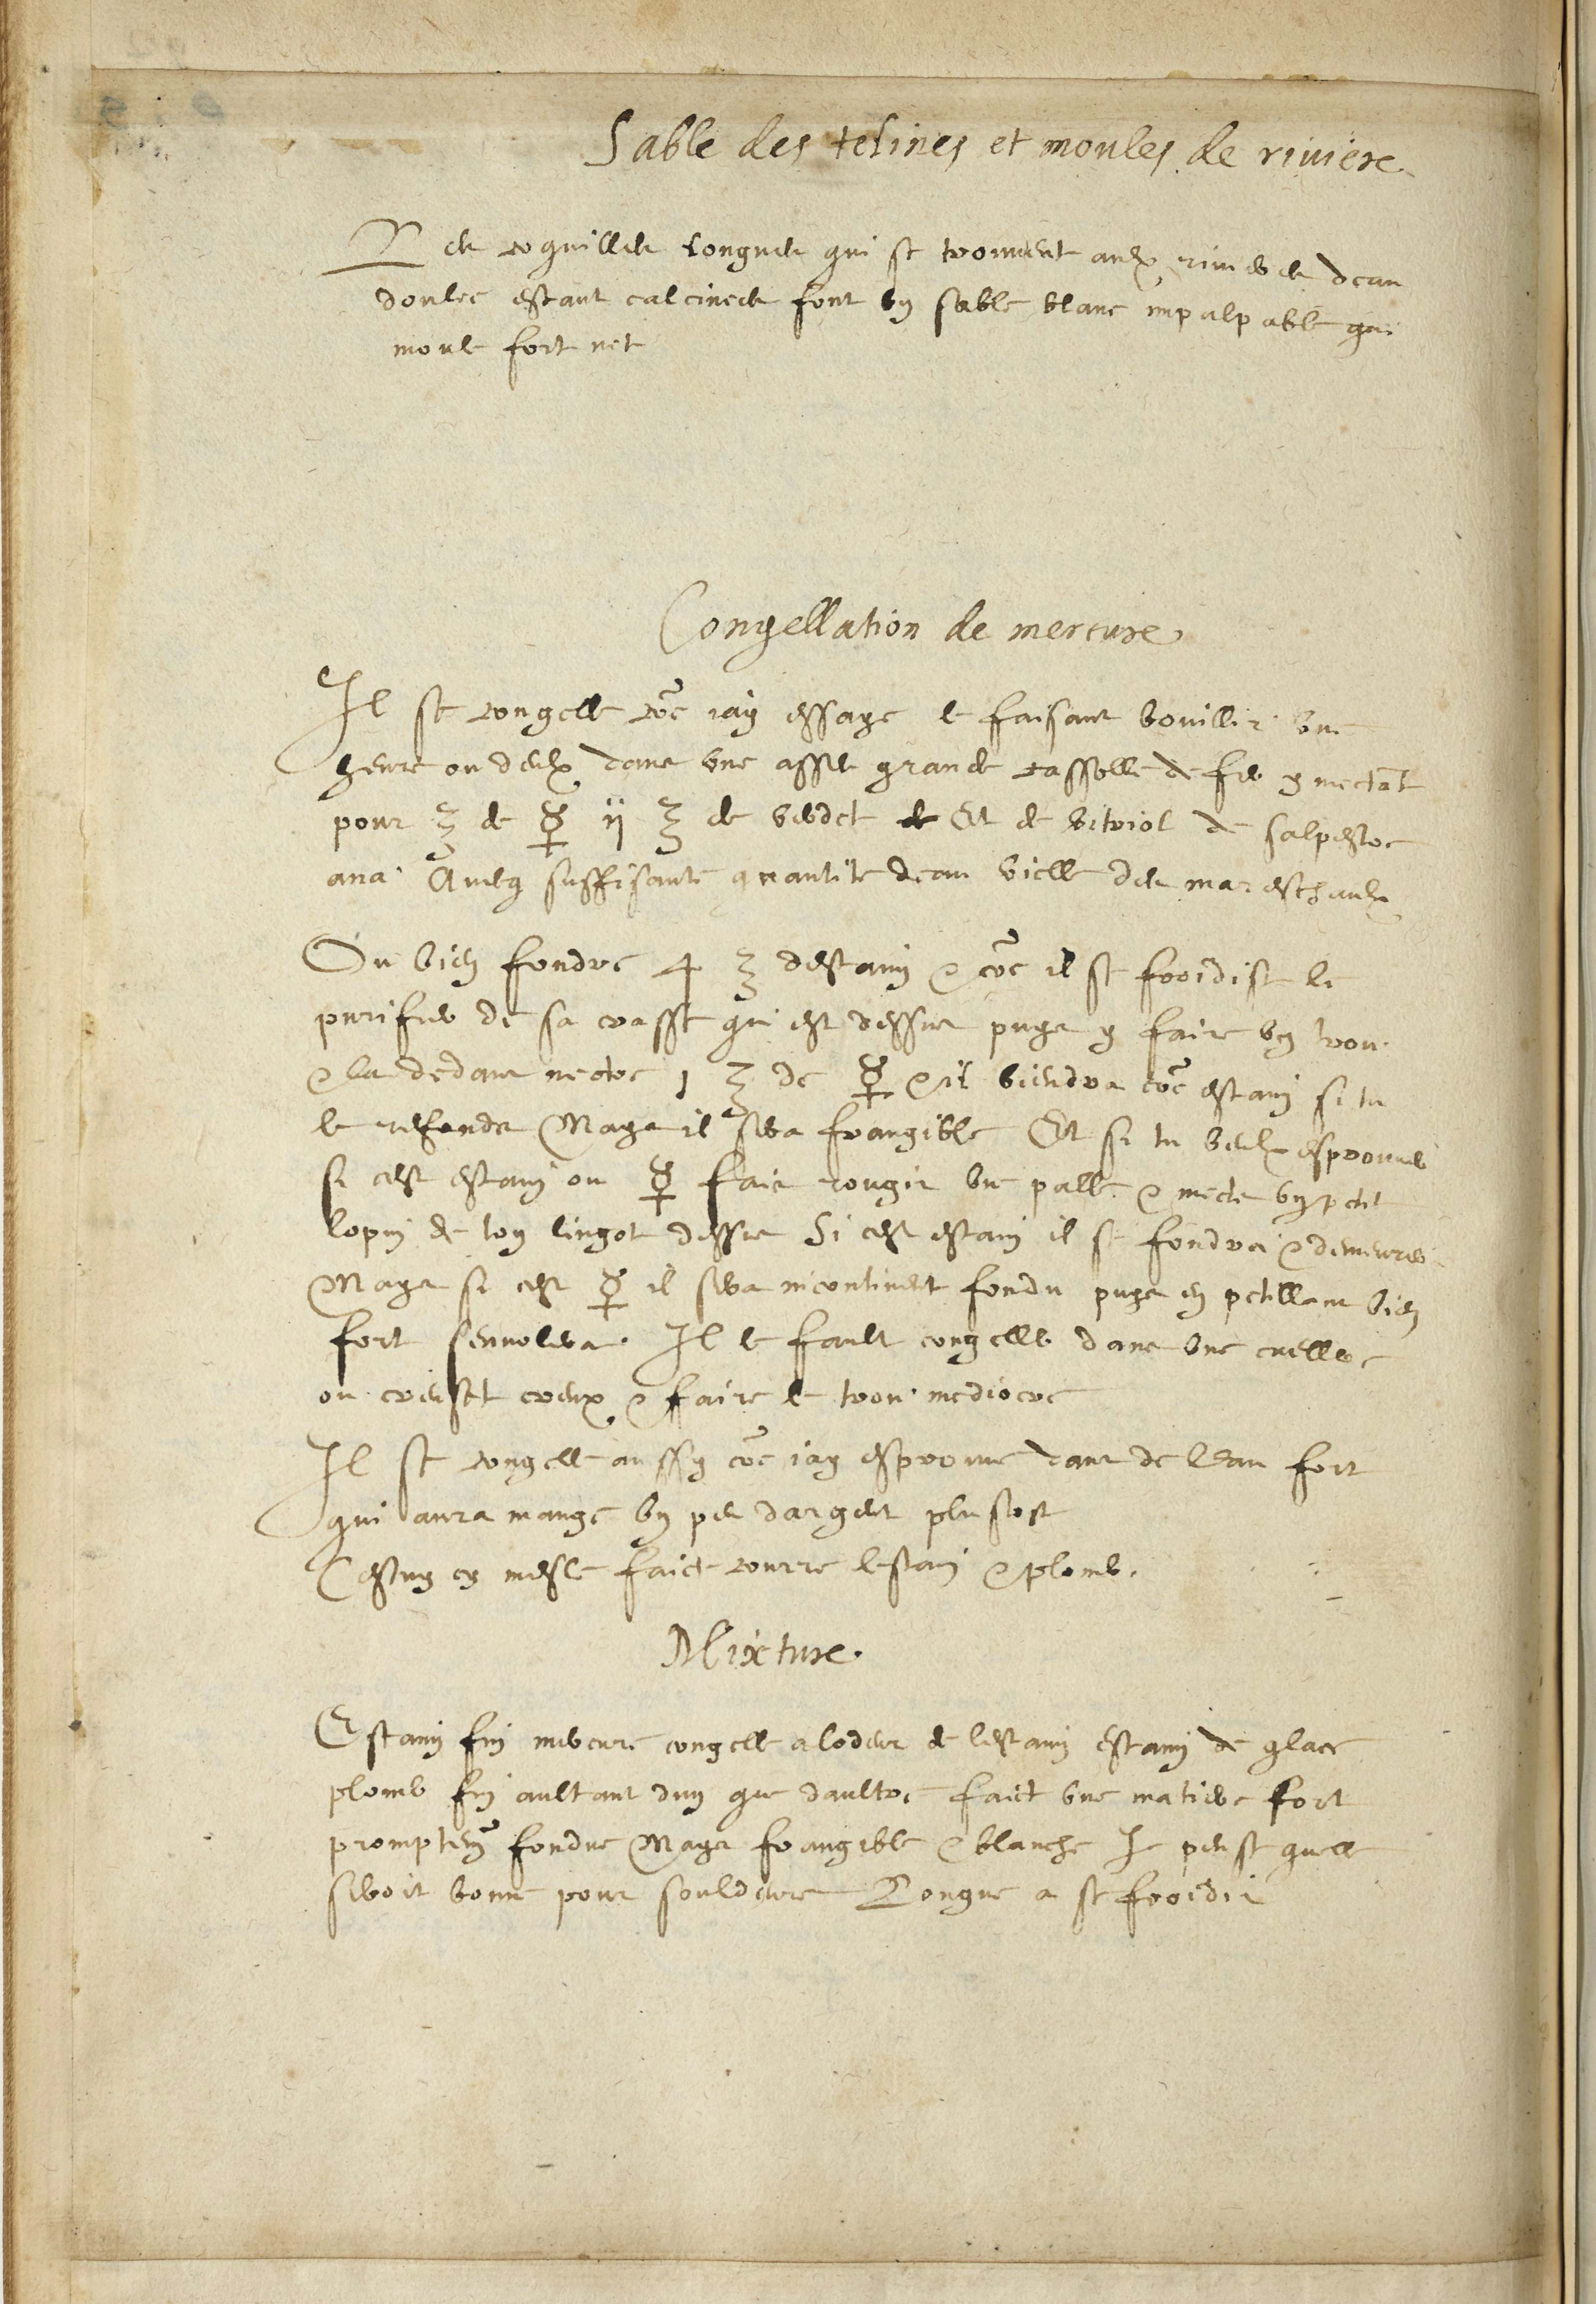 Sable des telines et moules de riviere
Les coquilles longues qui se trouvent aulx rivieres deau
doulce estant calcinees font un sable blanc impalpable qui
moule fort net
Congellation de mercure
Il se congelle coē jay essaye le faisant bouillir une
heure ou deulx dans une asses grande cassolle de fer y mectāt
pour ℥ de ☿ ij ℥ de verdet Et de vitriol de salpestre
ana Avecq suffisante quantite deau vielle des mareschaulx
Ou bien fondre 4 ℥ destain & coē il se froidist le
purifier de sa crasse qui est dessus puys y faire un trou
& la dedans mectre 1 ℥ de ☿ & il viendra coē estain si tu
le refonds Mays il sera frangible Et si tu veulx esprouver
si cest estain ou ☿ fais rougir une palle & mects un petit
lopin de ton lingot dessus Si cest estain il se fondra & demeurera
Mays si cest ☿ il sera incontinent fondu puys en petillant bien
fort senvolera. Il le fault congeller dans une cuellere
ou creuset creux & faire le trou mediocre
Il se congelle aussy coē jay esprouve dans de leau fort
qui aura mange un peu dargent plustost
Cestuy cy mesle faict courre lestain & plomb.
Mixture.
Estain fin mercure congelle a lodeur de lestain estain de glace
plomb fin aultant dun que daultre faict une matiere fort
promptem̄ fondue Mays frangible & blanche Je pense quelle
seroit bonne pour souldeure Longue a se froidir